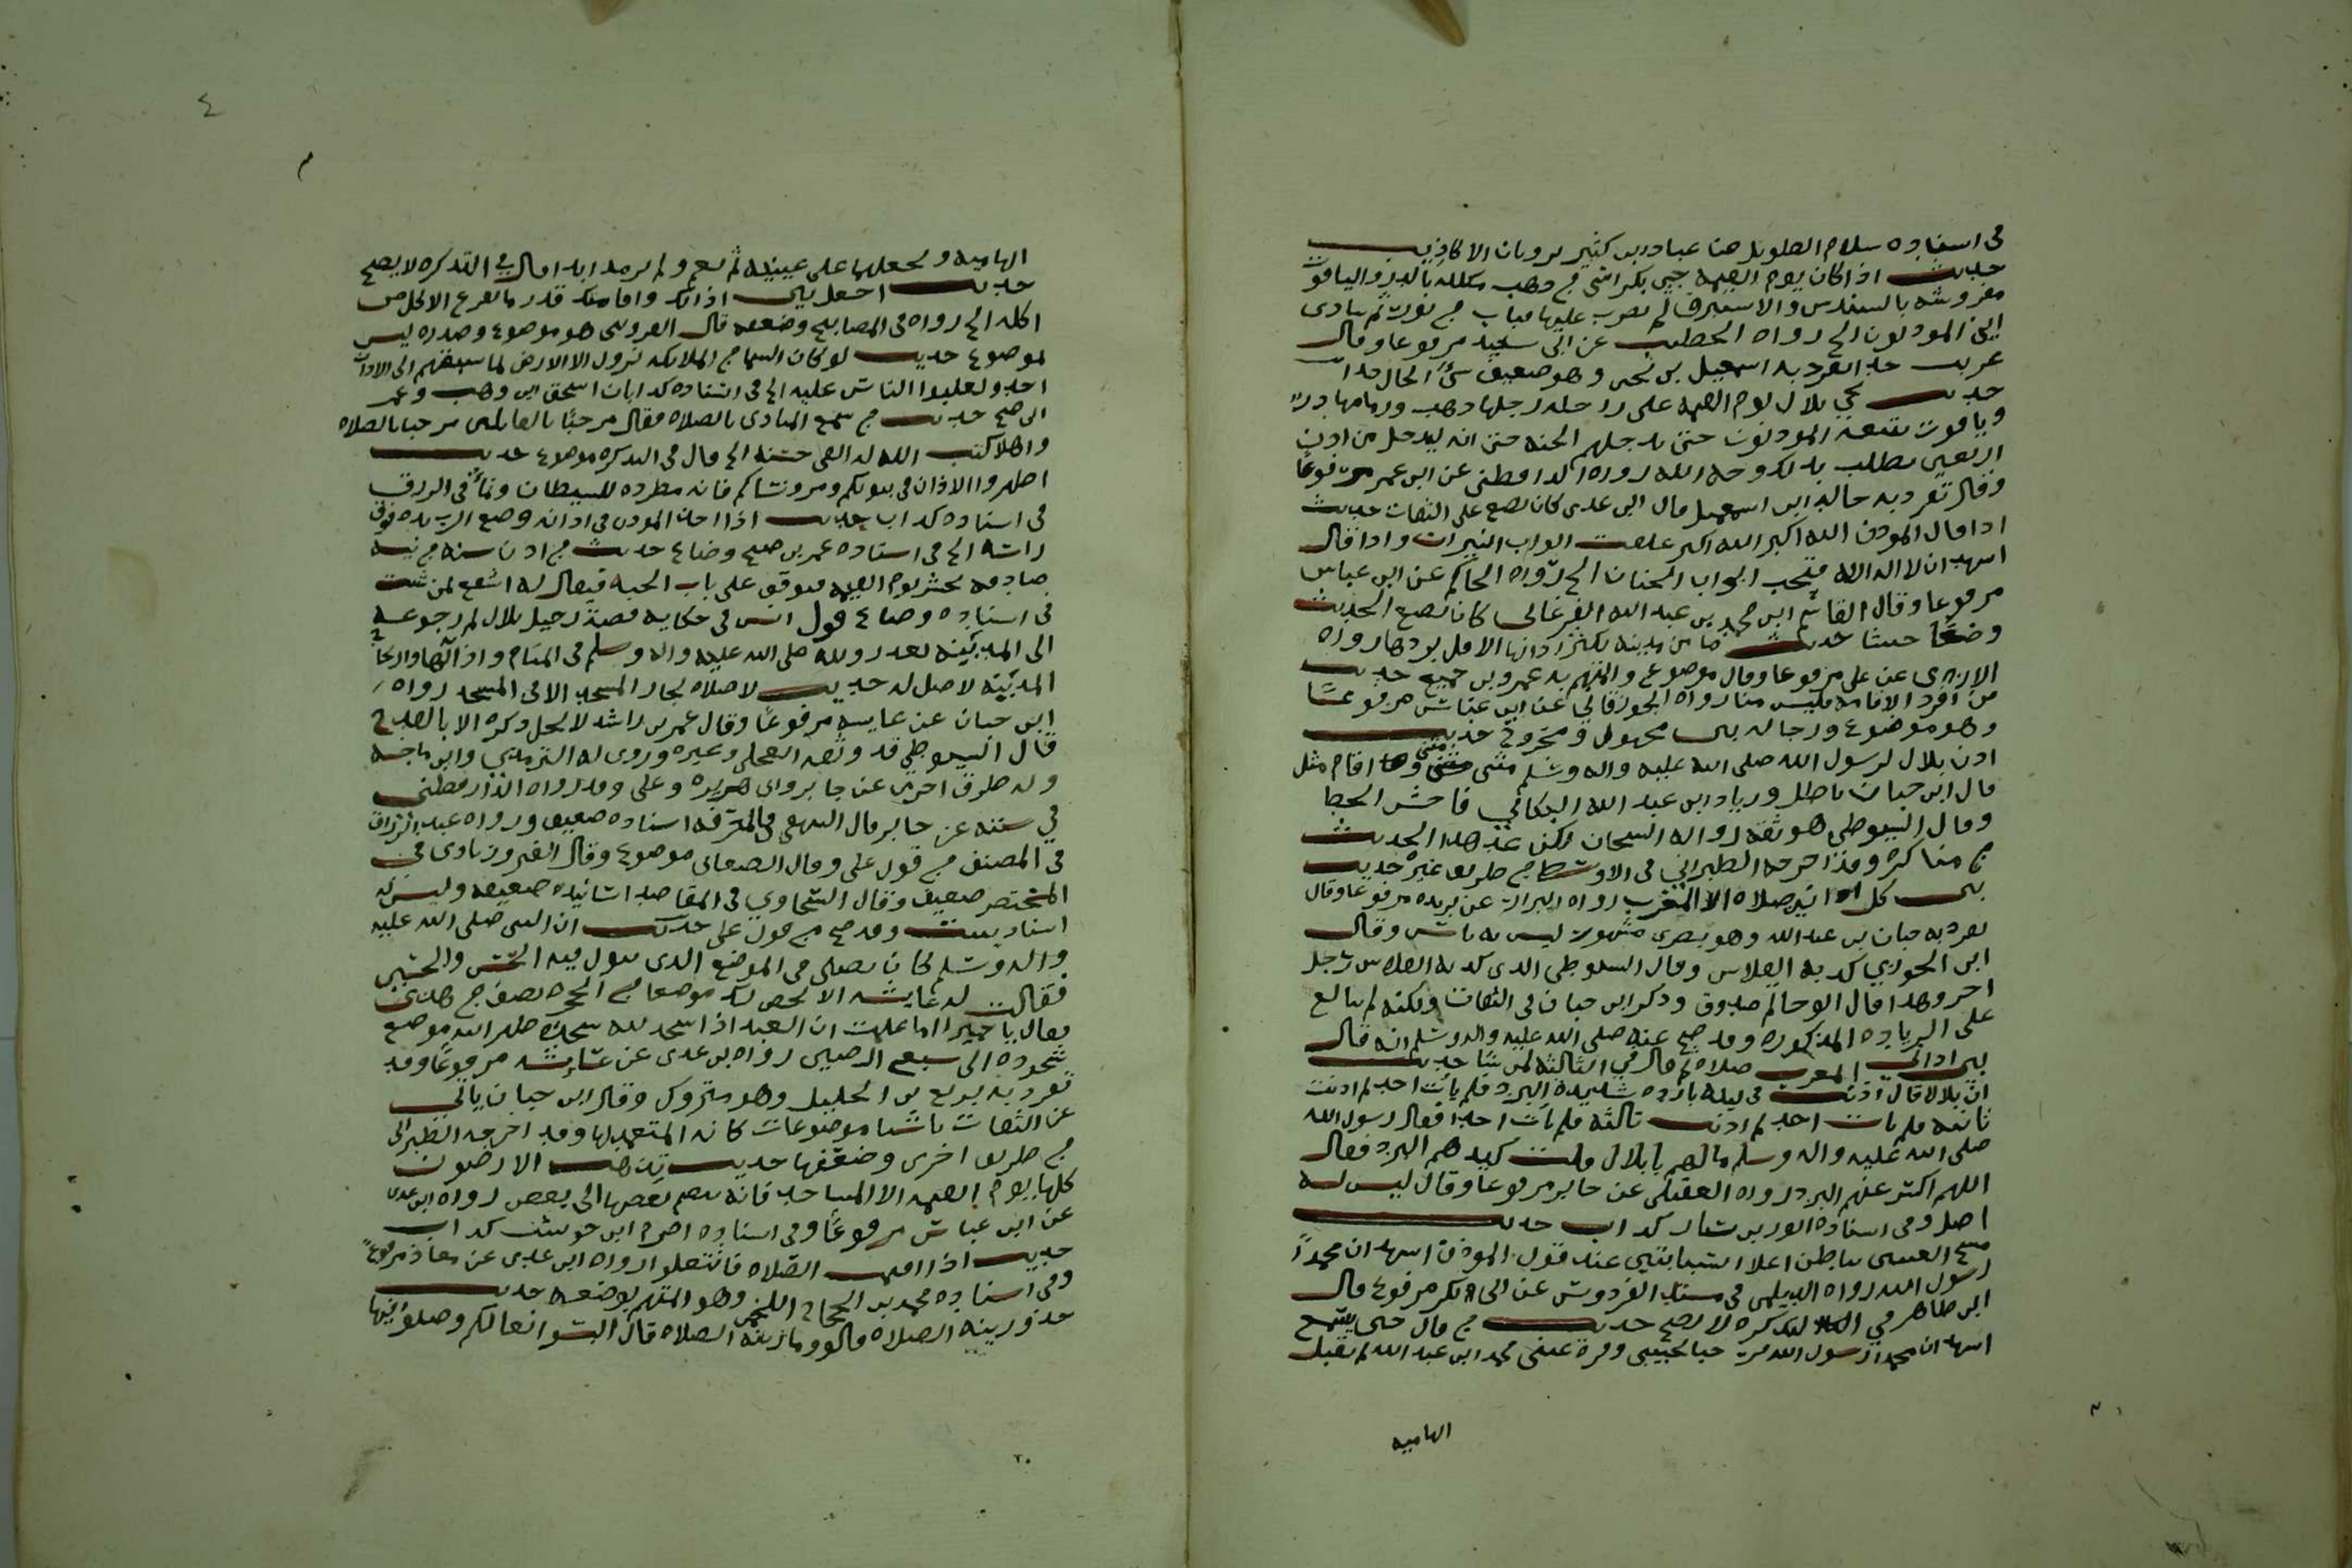 في اسناده سلام الطويل عن عباد بن كثير يرويان الاكاذيب
حديث اذا كان يوم القيمة جيء بكراسي من ذهب مكللة بالدر والياقوت
مفروشه بالسندس والاستبرق ثم يضرب عليها قباب من نور ثم ينادى
اين المؤذنون الخ رواه الخطيب عن ابي سعيد مرفوعا وقال
غريب تفرد به اسمعيل بن يحيى وهو ضعيف سيء الحال جدا
حديث يجي بلال يوم القيمة على راحلة رحلها ذهب وزمامها در
وياقوت يتبعه المؤذنون حتى يدخلهم الجنة حتى انه ليدخل من اذن
اربعين يطلب بذلك وجه الله رواه الدارقطني عن ابن عمر مرفوعا
وقال تفرد به خالد ابن اسمعيل قال ابن عدي كان يضع على الثقات حديث
اذا قال المؤذن الله اكبر الله اكبر غلقت ابواب النيران واذا قال
اشهد ان لا اله الا الله فتحت ابواب الجنان الخ رواه الحاكم عن ابن عباس
مرفوعا وقال القاسم ابن محمد بن عبد الله الفرغاني كان يضع الحديث
وضعا حديث ما من مدينة يكثر اذانها الا قل بردها رواه
الازدي عن علي مرفوعا وقال موضوع والمتهم به عمرو بن جميع حديث
من افرد الاقامه فليس منا رواه الجوزقاني عن ابن عباس مرفوعا
وهو موضوع ورجاله بين مجهول ومجروح حديث
اذن بلال لرسول الله صلى الله عليه واله وسلم مثنى مثنى واقام مثل
قال ابن حبان باطل وزياد ابن عبد الله البكائي فاحش الخطا
وقال السيوطي هو ثقة روى له الشيخان لكن عد هذا الحديث
من مناكيره وقد اخرجه الطبراني في الاوسط من طريق غيره حديث
بين كل اذانين صلاة الا المغرب رواه البزار عن بريده مرفوعا وقال
تفرد به حبان بن عبد الله وهو بصري مشهور ليس به باس وقال
ابن الجوزي كذبه الفلاس وقال السيوطي الذي كذبه الفلاس رجل
اخر وهذا قال ابو حاتم صدوق وذكر ابن حبان في الثقات ولكنه لم يتابع
على الزيادة المذكورة وقد صح عنه صلى الله عليه واله وسلم انه قال
بين اذاني المغرب صلاة ثم قال في الثالثة لمن شا حديث
ان بلالا قال اذنت في ليلة باردة شديدة البرد فلم يات احد ثم اذنت
ثانية فلم يات احد ثم اذنت ثالثة فلم يات احد فقال رسول الله
صلى الله عليه واله وسلم مالهم يا بلال قلت كبدهم البرد فقال
اللهم اكسر عنهم البرد رواه العقيلي عن جابر مرفوعا وقال ليس له
اصل وفي اسناده ايوب بن سيار كذاب حديث
مسح العينين بباطن اعلا السبابتين عند قول المؤذن اشهد ان محمدا
رسول الله رواه الديلمي في مسند الفردوس عن ابي بكر مرفوع قال
ابن طاهر في التذكره لا يصح حديث من قال حين يسمع
اشهد ان محمدا رسول الله مرحبا بحبيبي وقرة عيني محمد ابن عبد الله ثم يقبل
الهاميه
٤
الهاميه ويجعلهما على عينيه لم يعم ولم يرمد ابدا قال في التذكره لا يصح
حديث اجعل بين اذانك واقامتك قدر ما يفرغ الاكل من
اكله الخ رواه في المصابيح وضعفه قال القزويني هو موضوع وصدره ليس
لموضوع حديث لو كان السما من الملائكة نزول الا الارض لما سبقهم الى الاذان
احد ولغلبوا الناس عليه الخ في اسناده كذابان اسحق ابن وهب وعمر
ابن صبح حديث من سمع المنادي بالصلاه فقال مرحبا بالقائلين مرحبا بالصلاه
واهلا كتب الله له الفي حسنة الخ قال في التذكره موضوع حديث
اظهروا الاذان في بيوتكم ومروا نساكم فانه مطردة للشيطان ونما في الرزق
في اسناده كذاب حديث اذا اخذ المؤذن في اذانه وضع الرب يده فوق
راسه الخ في اسناده عمر بن صبح وضاع حديث من اذن سنة من نية
صادقة يحشر يوم القيمة فيوقف على باب الجنة فيقال له اشفع لمن شئت
في اسناده وضاع قول انس في حكاية قصة رحيل بلال ثم رجوعه
الى المدينة بعد روئته صلى الله عليه واله وسلم في المنام واذانه بها وارتجاج
المدينة لا اصل له حديث لا صلاة لجار المسجد الا في المسجد رواه
ابن حبان عن عايشه مرفوعا وقال عمر بن راشد لا يحل ذكره الا بالقدح
قال السيوطي قد وثقه العجلي وغيره وروى له الترمذي وابن ماجه
وله طرق اخرى عن جابر وابي هريره وعلي وقد رواه الدارقطني
في سننه عن جابر قال البيهقي في المعرفه اسناده ضعيف ورواه عبد الرزاق
في المصنف من قول علي وقال الصغاني موضوع وقال الفيروزبادي في
المختصر ضعيف وقال السخاوي في المقاصد اسانيده ضعيفه وليس له
اسناد يثبت وقد صح من قول علي حديث ان النبي صلى الله عليه
واله وسلم كان يصلي في الموضع الذي يبول فيه الحسن والحسين
فقالت له عايشه الا تخص لك موضعا من الحجره نصف من هذي
فقال يا حميرا اما علمت ان العبد اذا سجد لله سجده طهر الله موضع
سجوده الى سبع ارضين رواه ابن عدي عن عايشه مرفوعا وقد
تفرد به بزيع بن الخليل وهو متروك وقال ابن حبان ياتي
عن الثقات باشيا موضوعات كانه المتعمد لها وقد اخرجه الطبراني
من طريق اخرى وضعفها حديث تذهب الارضون
كلها يوم القيمة الا المساجد فانه ينضم بعضها الى بعض رواه ابن عدي
عن ابن عباس مرفوعا وفي اسناده اصرم ابن حوشب كذاب
حديث اذا اقيمت الصلاه فانتعلوا رواه ابن عدي عن معاذ مرفوعا
وفي اسناده محمد بن الحجاج اللخمي وهو المتهم بوضعه حديث
خذو زينة الصلاه قالوا وما زينة الصلاه قال البسوا نعالكم وصلوا فيها